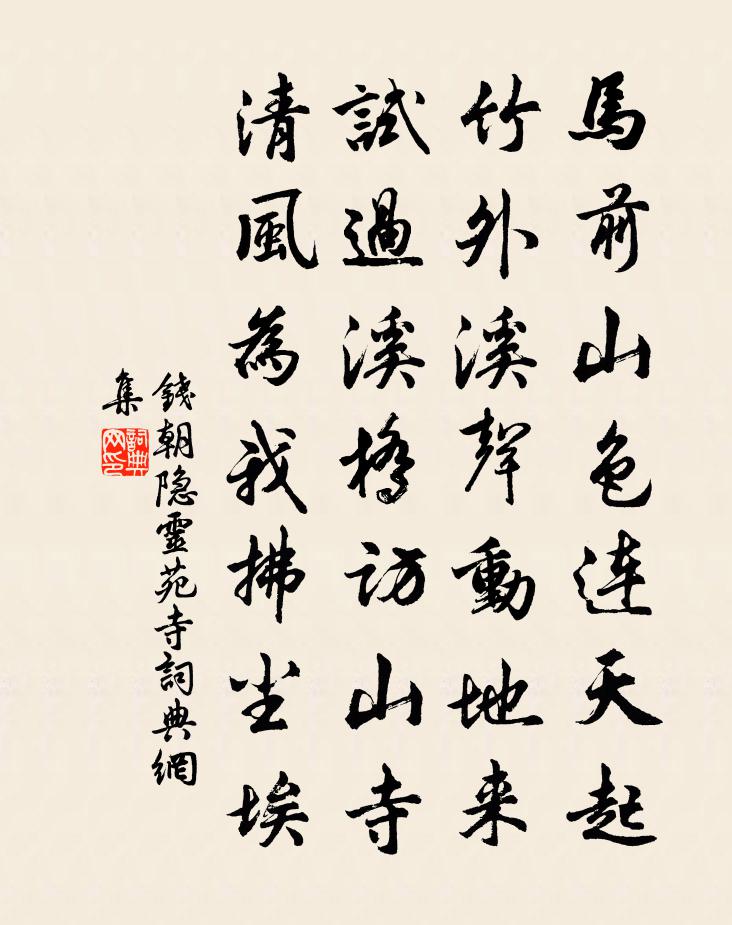 馬前山色連天起
竹外溪聲動地来
試過溪橋訪山寺
清風為我拂尘埃
錢朝隐靈苑寺詞典網
集
詞典
网印